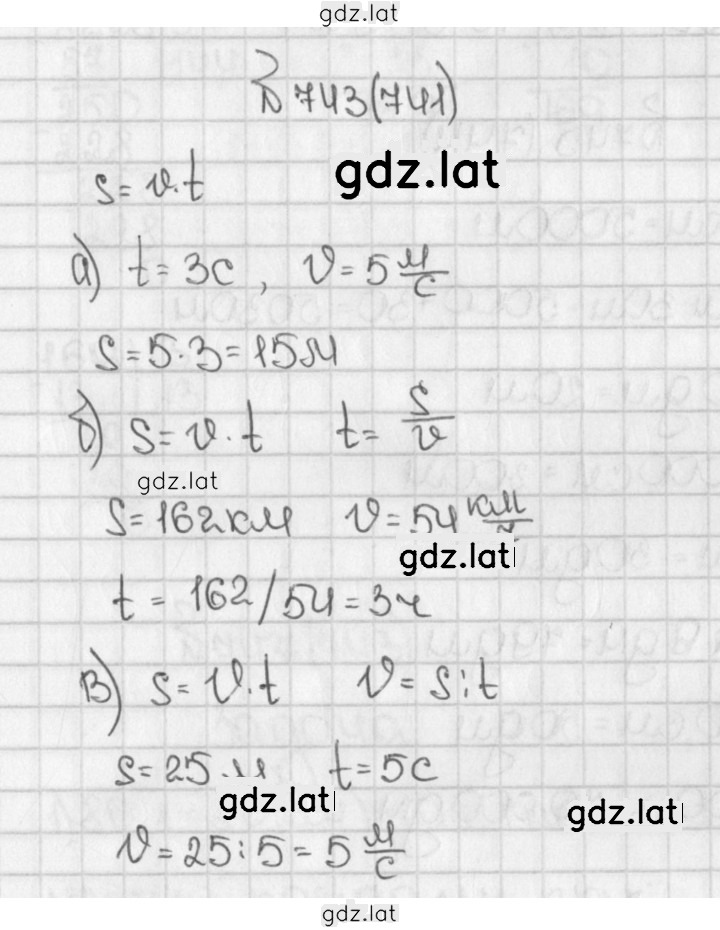 gdz.lat
№ 743(741)
gdz.lat
S = v·t
а) t = 3с, v = 5 м/с
S = 5·3 = 15м
б) S = v·t t = S/v
gdz.lat
S = 162км v = 54 км/ч
gdz.lat
t = 162/54 = 3ч
в) S = v·t v = S:t
S = 25 м t = 5с
gdz.lat
gdz.lat
v = 25:5 = 5 м/с
gdz.lat